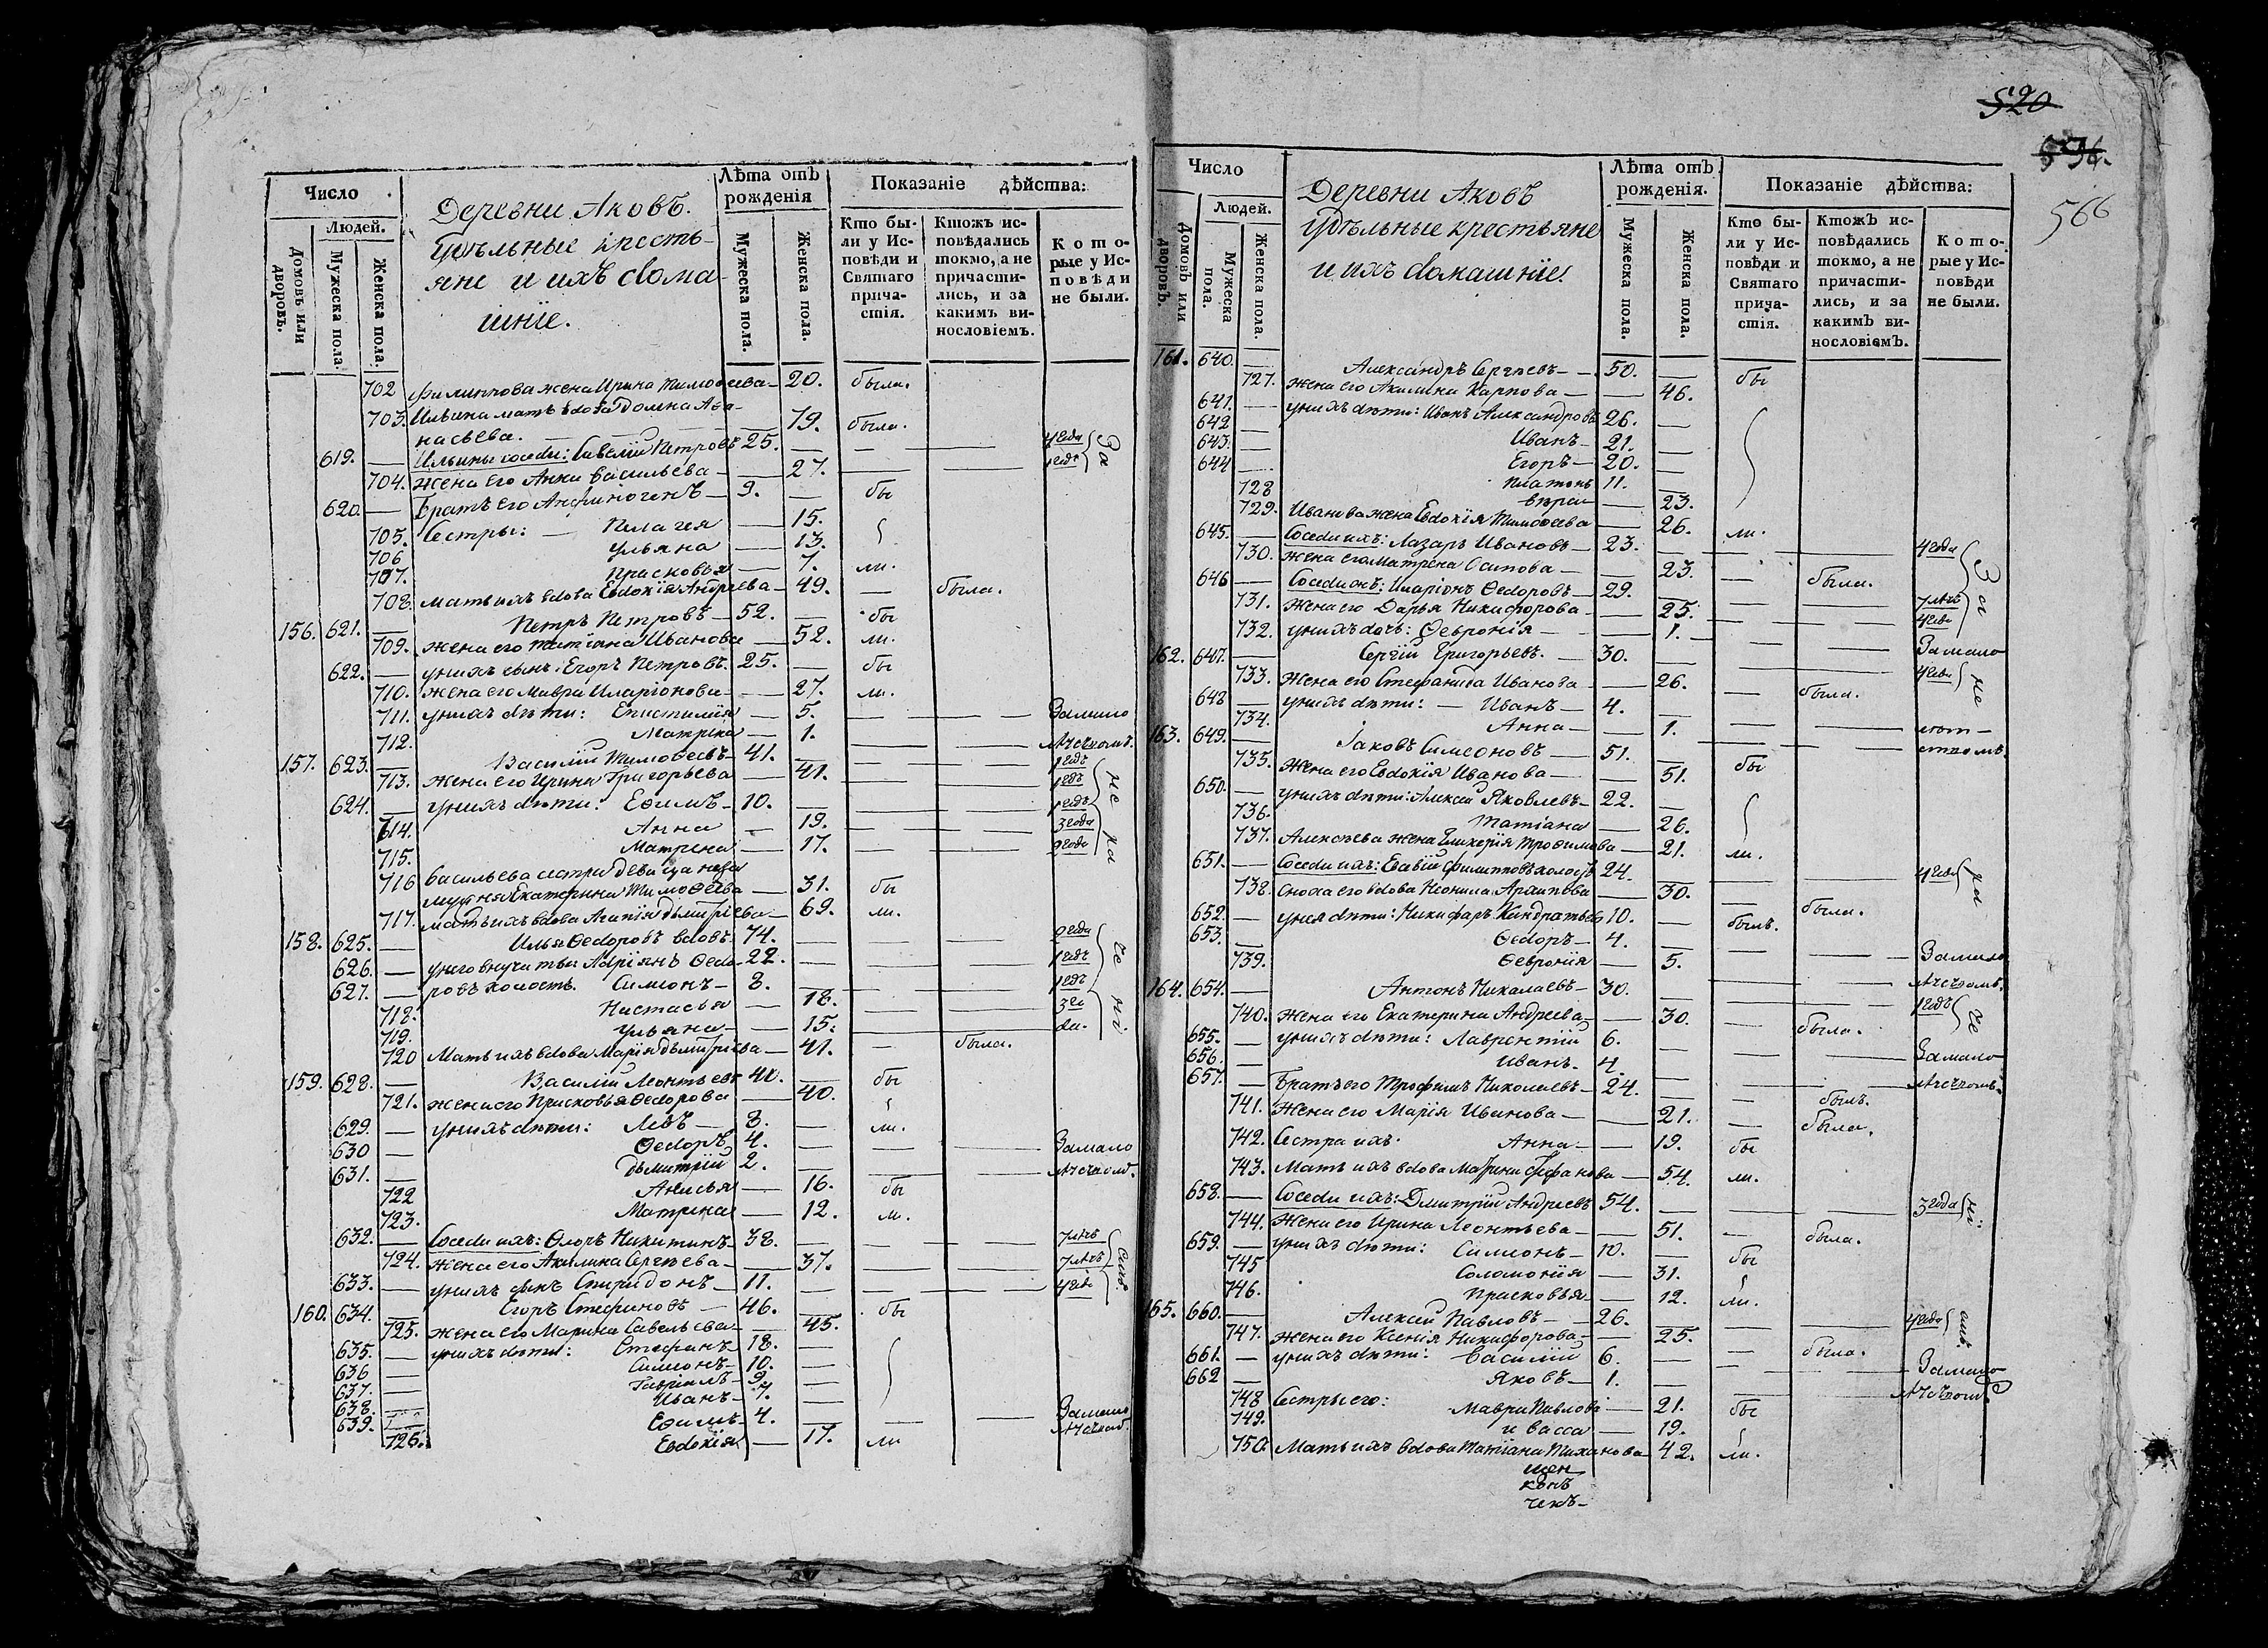 520
536.
566
Число
Людей.
Домовъ или дворовъ.
Мужеска пола.
Женска пола.
Деревни Аковъ.
Удѣльные кресть-
яне и ихъ дома-
шніе.
Лѣта отъ рожденія
Мужеска пола.
Женска пола.
Показаніе дѣйства:
Кто бы-
ли у Ис-
повѣди и
Святаго
прича-
стія.
Ктожъ ис-
повѣдались
токмо, а не
причасти-
лись, и за
какимъ ви-
нословіемъ.
Кото-
рые у Ис-
повѣди
не были.
702 Филиппова жена Ирина Тимоѳеева — 20. была.
703. Ильина мать вдова Домна Аѳа-
насьева. — 79. была.
619. — Ильины соседи: Савелій Петровъ 25. — — — 4 года
704. жена его Анна Васильева — — 27. — — 1 годъ За
620. — Братъ его Анфиногенъ — 9. — бы
705. Сестры: — Пелагея — 15.
706 Ульяна — 13.
707. Прасковья — 7. ли.
708. мать ихъ вдова Евдокія Андреева — 49. — была.
156. 621. — Петръ Петровъ — 52. — бы
709. жена его Татіана Иванова — 52. ли.
622. — у нихъ сынъ: Егоръ Петровъ. 25. — бы
710. жена его Мавра Иларіонова — — 27. ли.
711. у нихъ дѣти: Епистилія — 5. — — Замало
712. Матрена — 1. — — лѣтствомъ.
157. 623. — Василій Тимоѳеевъ — 41. — — — 1 годъ
713. жена его Ирина Григорьева — 41. — — 1 годъ
624. — у нихъ дѣти: Еѳимъ — 10. — — — 1 годъ не
714. Анна — 19. — — 3 года
715. Матрена — 17. — — 2 года ра
716 Васильева сестра девица неза
мужня Екатерина Тимоѳеева — 31. бы
717. мать ихъ вдова Агапія Дьмитріева — 69. ли.
158. 625. — Илья Ѳедоровъ вдовъ. 74. — — — 2 года
626. — у него внучаты Адріянъ Ѳедо- 22. — — — 1 годъ че
627. — ровъ холостъ. Симіонъ — 8. — — — 1 годъ
718. Настасья — 18. — — 3 го ні
719. Ульяна — — 15. — — да.
720 Мать ихъ вдова Марія Дьмитріева — 41. — была.
159. 628. — Василій Леонтьевъ 40. — бы
721. жена его Прасковья Ѳедорова — 40.
629. — у нихъ дѣти: Левъ — 8. — ли.
630 — Ѳедоръ 4. — — — Замало
631. — Дьмитрій 2. — — — лѣтствомъ.
722 Анисья — 16. бы
723. Матрена — 12. ли.
632. — Соседи ихъ: Флоръ Никитинъ — 38. — — — 7 лѣтъ
724. жена его Акилина Сергѣева — — 37. — — 7 лѣтъ емъ.
633. — у нихъ сынъ Спиридонъ — 11. — — — 4 года
160. 634. — Егоръ Стефановъ — 46. — бы
725. жена его Марина Савельева — — 45.
635. — у нихъ дѣти: Стефанъ 18. —
636 — Симіонъ — 10. —
637. — Гавріилъ — 9. —
638. — Иванъ — 7. —
639. — Еѳимъ — 4. — — — Замало
лѣтствомъ.
726. Евдокія — 17. ли
Число
Людей.
Домовъ или дворовъ.
Мужеска пола.
Женска пола.
Деревни Аковъ
Удѣльные крестьяне
и ихъ домашніе.
Лѣта отъ рожденія.
Мужеска пола.
Женска пола.
Показаніе дѣйства:
Кто бы-
ли у Ис-
повѣди и
Святаго
прича-
стія.
Ктожъ ис-
повѣдались
токмо, а не
причасти-
лись, и за
какимъ ви-
нословіемъ.
Кото-
рые у Ис-
повѣди
не были.
161. 640. — Александръ Сергѣевъ — 50. — бы
727. жена его Акилина Карпова — — 46.
641. — у нихъ дѣти: Иванъ Александровъ 26. —
642 — Иванъ — 21. —
643. — Егоръ — 20. —
644 — Платонъ 11. —
728 Вѣра — 23.
729. Иванова жена Евдокія Тимоѳеева — 26. ли.
645. — Соседи ихъ: Лазаръ Ивановъ — 23. — — — 4 года
730. жена его Матрена Осипова — — 23. — была.
646 — Соседи ихъ: Иларіонъ Ѳедоровъ — 29. — — — 7 лѣтъ За
731. Жена его Дарья Никифорова — — 25. — — 4 года
732. у нихъ дочь: Ѳевронія — — 1. — — Замало
162. 647. — Сергій Григорьевъ. — 30. — — — 4 года не
733. жена его Стефанида Иванова — — 26. — была.
648 — у нихъ дѣти: — Иванъ — 4. — — — лѣт-
734. Анна — — 1. — — ствомъ.
163. 649. — Іаковъ Симеоновъ — 51. — бы
735. Жена его Евдокія Иванова — — 51.
650. — у нихъ дѣти: Алексій Яковлевъ — 22. —
736. Татіана — 26.
737. Алексѣева жена Гликерія Трофимова — 21. ли.
651. — Соседи ихъ: Савій Филипповъ холостъ 24. — — — 4 года ра
738. Сноха его вдова Неонила Архипова — 30. — была.
652. — у нея дѣти: Никифоръ Кондратьевъ 10. — былъ.
653. — Ѳедоръ — 4. — — — Замало
739. Ѳевронія — 5. — — лѣтствомъ.
164. 654. — Антонъ Николаевъ — 30. — — — 1 годъ че
740. жена его Екатерина Андреева — — 30. — была.
655. — у нихъ дѣти: Лаврентій 6. — — — Замало
656. — Иванъ. 4. — — — лѣтствомъ.
657. — Братъ его Трофимъ Николаевъ — 24. — — былъ.
741. Жена его Марія Иванова — — 21. — была.
742. Сестра ихъ: Анна — — 19. бы
743. Мать ихъ вдова Матрина Стефанова — 54. ли.
658. — Соседи ихъ: Дмитрій Андреевъ 54. — — — 3 года ні
744. Жена его Ирина Леонтьева — — 51. — была.
659. — у нихъ дѣти: Симіонъ — 10. — бы
745 Соломонія — 31.
746. Прасковья — 12. ли.
165. 660. — Алексій Павловъ — 26. — — — 4 года емъ.
747. Жена его Ксенія Никифорова — — 25. — была.
661. — у нихъ дѣти: Василій 6. — — — Замало
662 — Яковъ — 1. — — — лѣтствомъ
748 Сестры его: Мавра Павлова — 21. бы
749. и Васса — 19.
750. Мать ихъ вдова Татіана Тиханова — 42. ли.